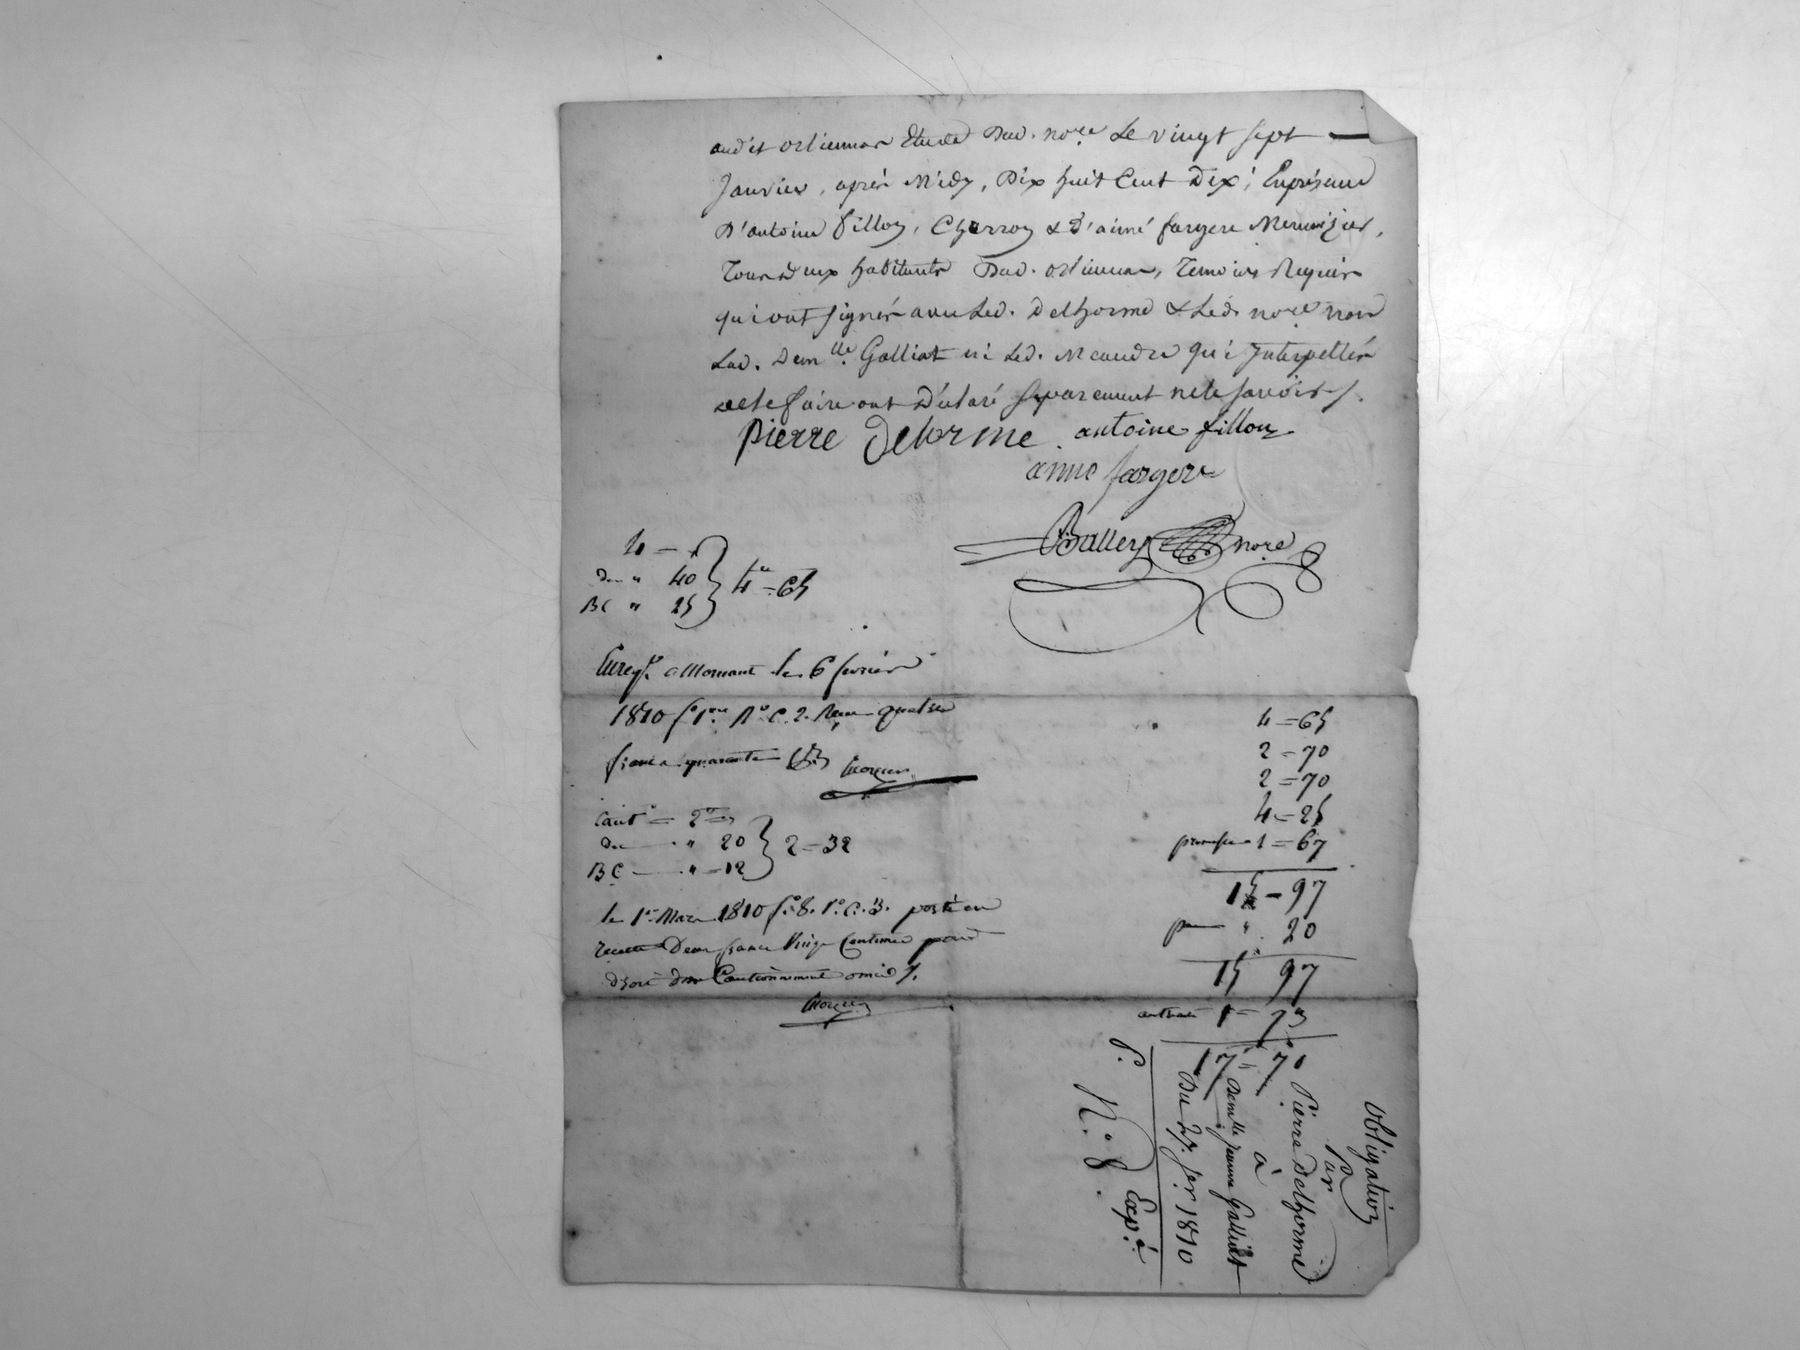 audit orliennas Etude dud. no.re Le vingt sept
Janvier, après Midy, Dix huit Cent Dix; En présence
D'antoine fillon, Charron & D'aimé fargere Menuizier,
Tous deux habitants Dud. orliennas, Temoins Requis
qui ont signés avec Led. Delhorme & Led. no.re non
Lad. Dem.lle Galliat ni Led. Meaudre qui Interpellés
de le faire ont Déclaré separement ne le savoir /.
pierre Delorme antoine fillon
aime fargere
Ballery no.re
4 = "
De " 40
BC " 25
4 = 65
Enreg.é a Mornant le 6 fevrier
1810 f.o 1 r.o C. 2. Reçu quatre
francs quarante
Caut.t = 2
De " 20
BC " = 12
2 = 32
le 1er Mars 1810 f.o 8. r.o C. 3. porté en
recette Deux francs Vingt Centimes pour
droit de Cautionnement omis /.
4 = 65
2 = 70
2 = 70
4 = 25
1 = 67
15 - 97
" 20
15 97
1 = 73
17 = 70
Obligation
Par
Pierre Delhorme
à
Dem.lle Jeanne Galliat
Du 27. Jer. 1810
Exp.é
N.o 8.